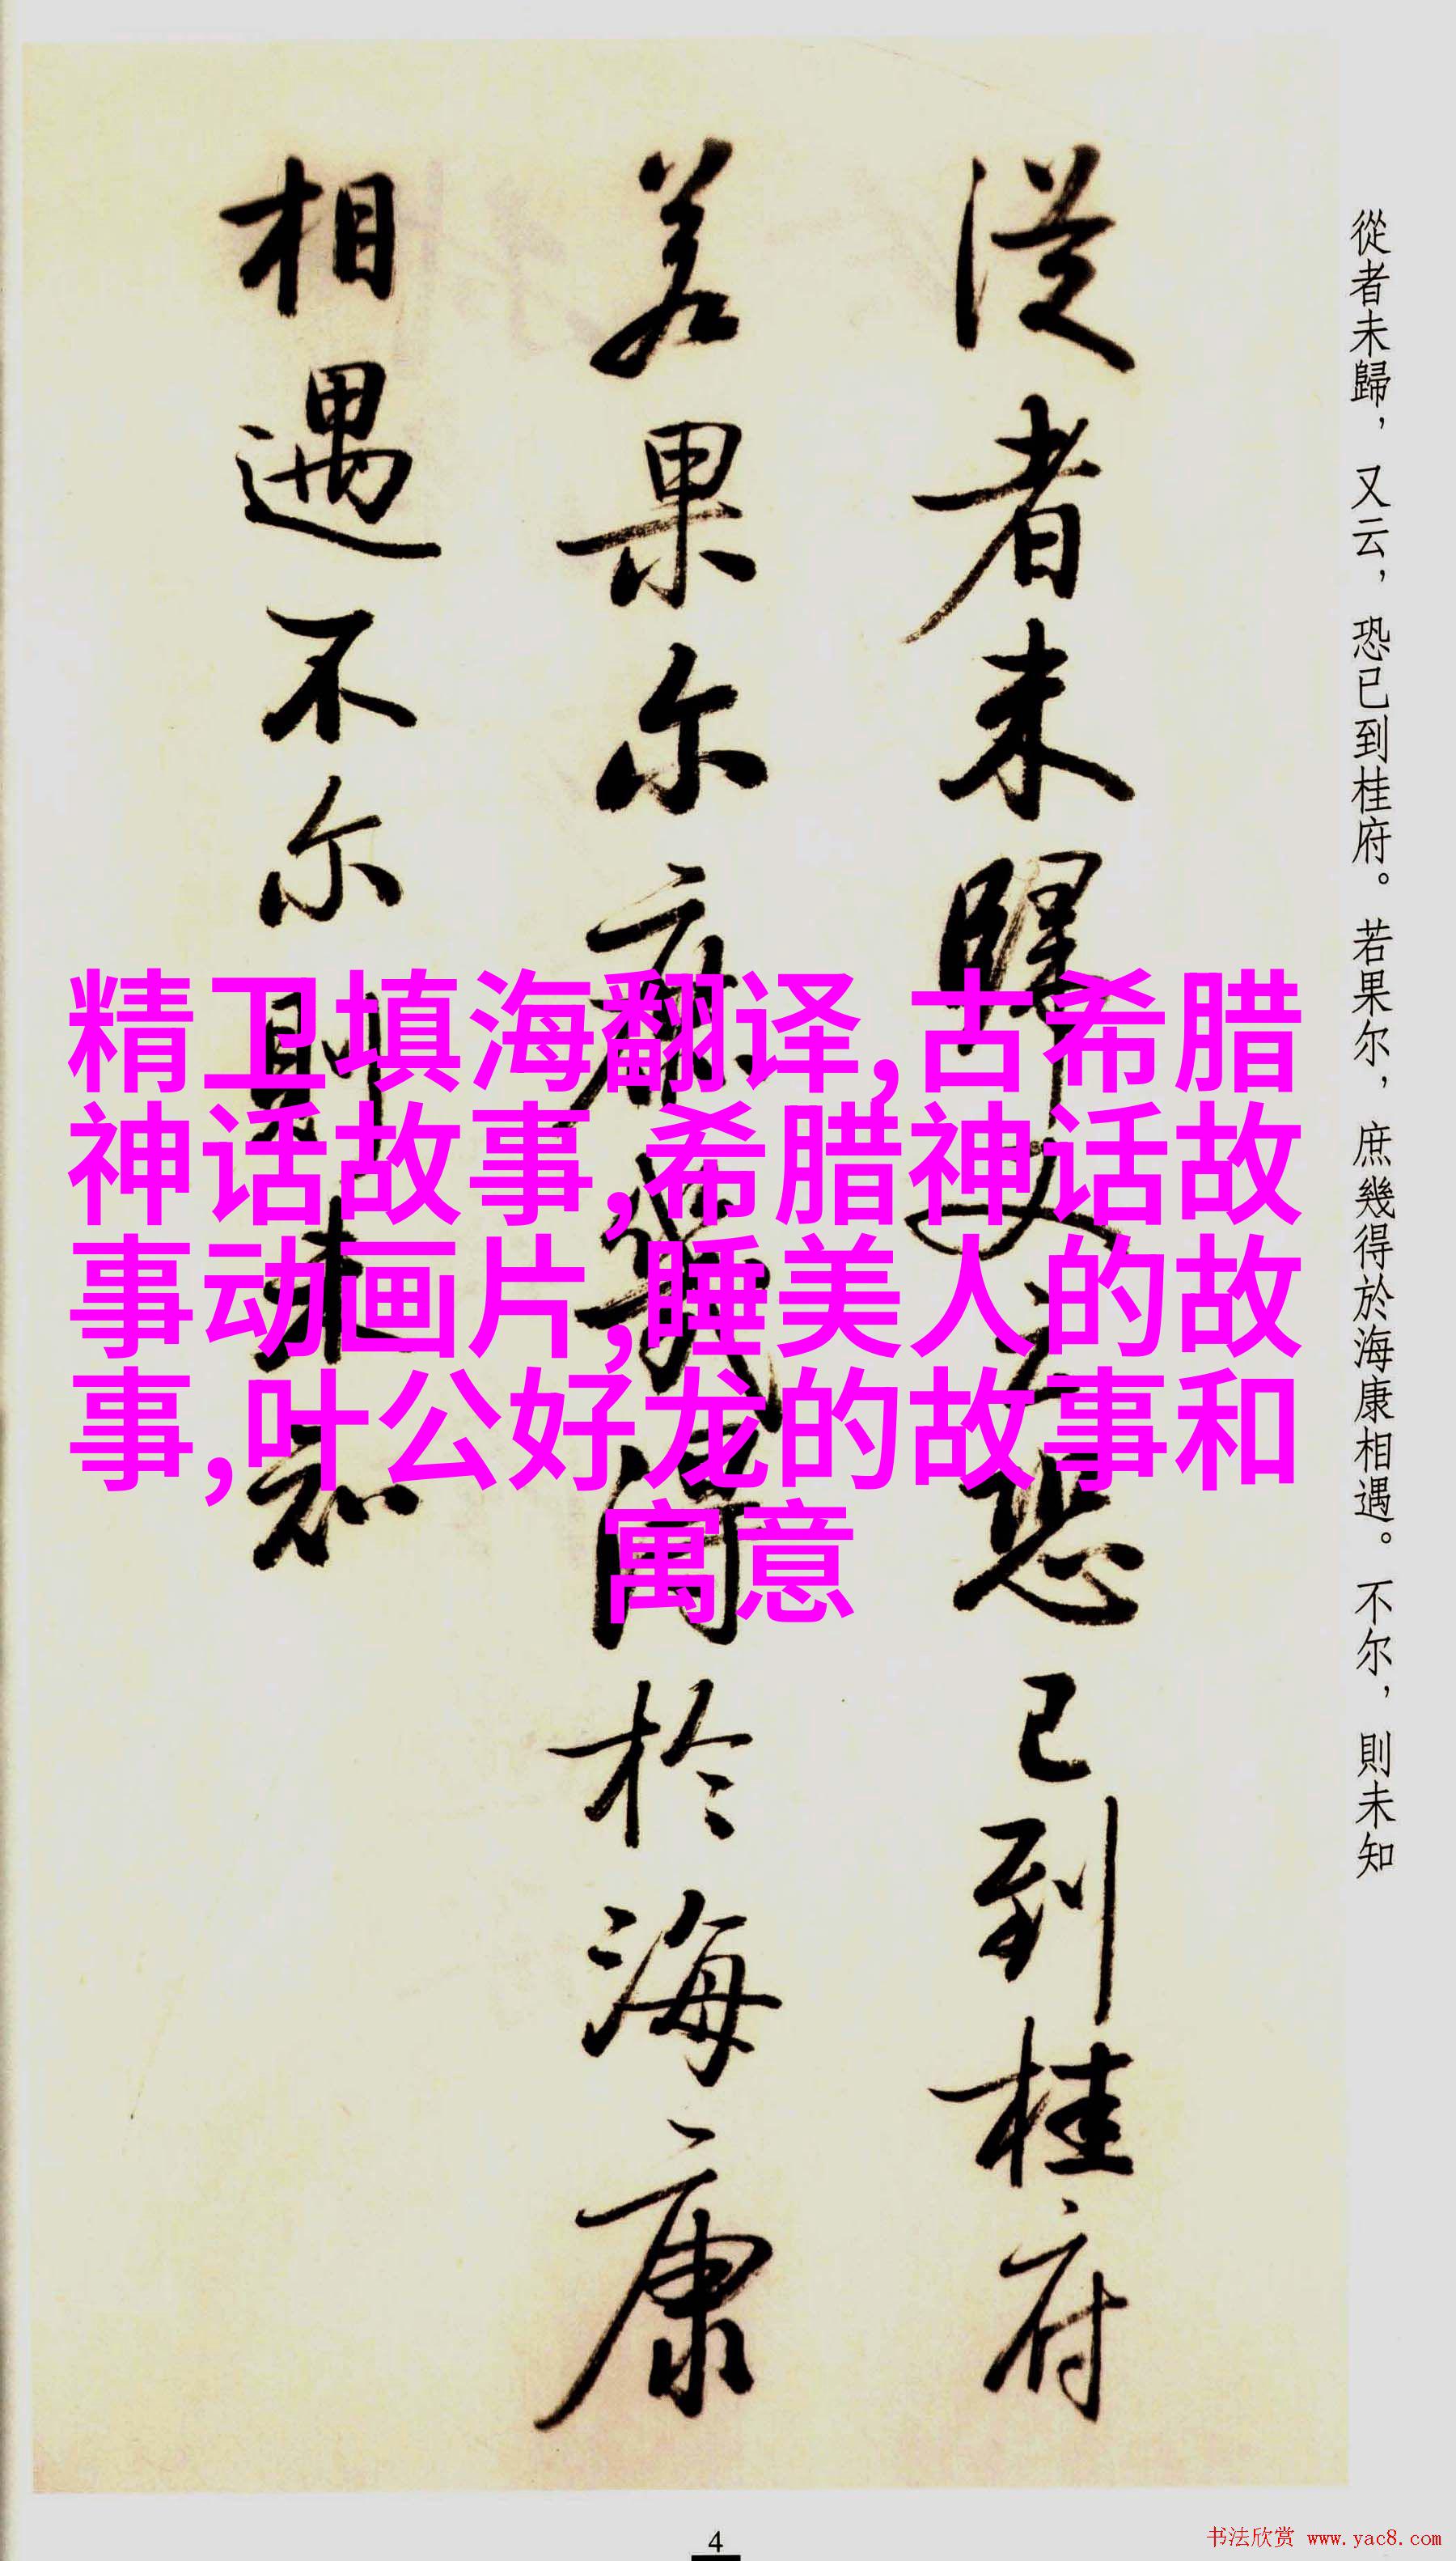 從者未歸，又云，恐已到桂府。若果尔，庶幾得於海康相遇。不尔，則未知
従者未歸又云恐已到桂府
若果尔庶幾得於海康
相遇不尔則未知
精卫填海翻译,古希腊
神话故事,希腊神话故
事动画片,睡美人的故
事,叶公好龙的故事和
寓意
4
书法欣赏 www.yac8.com